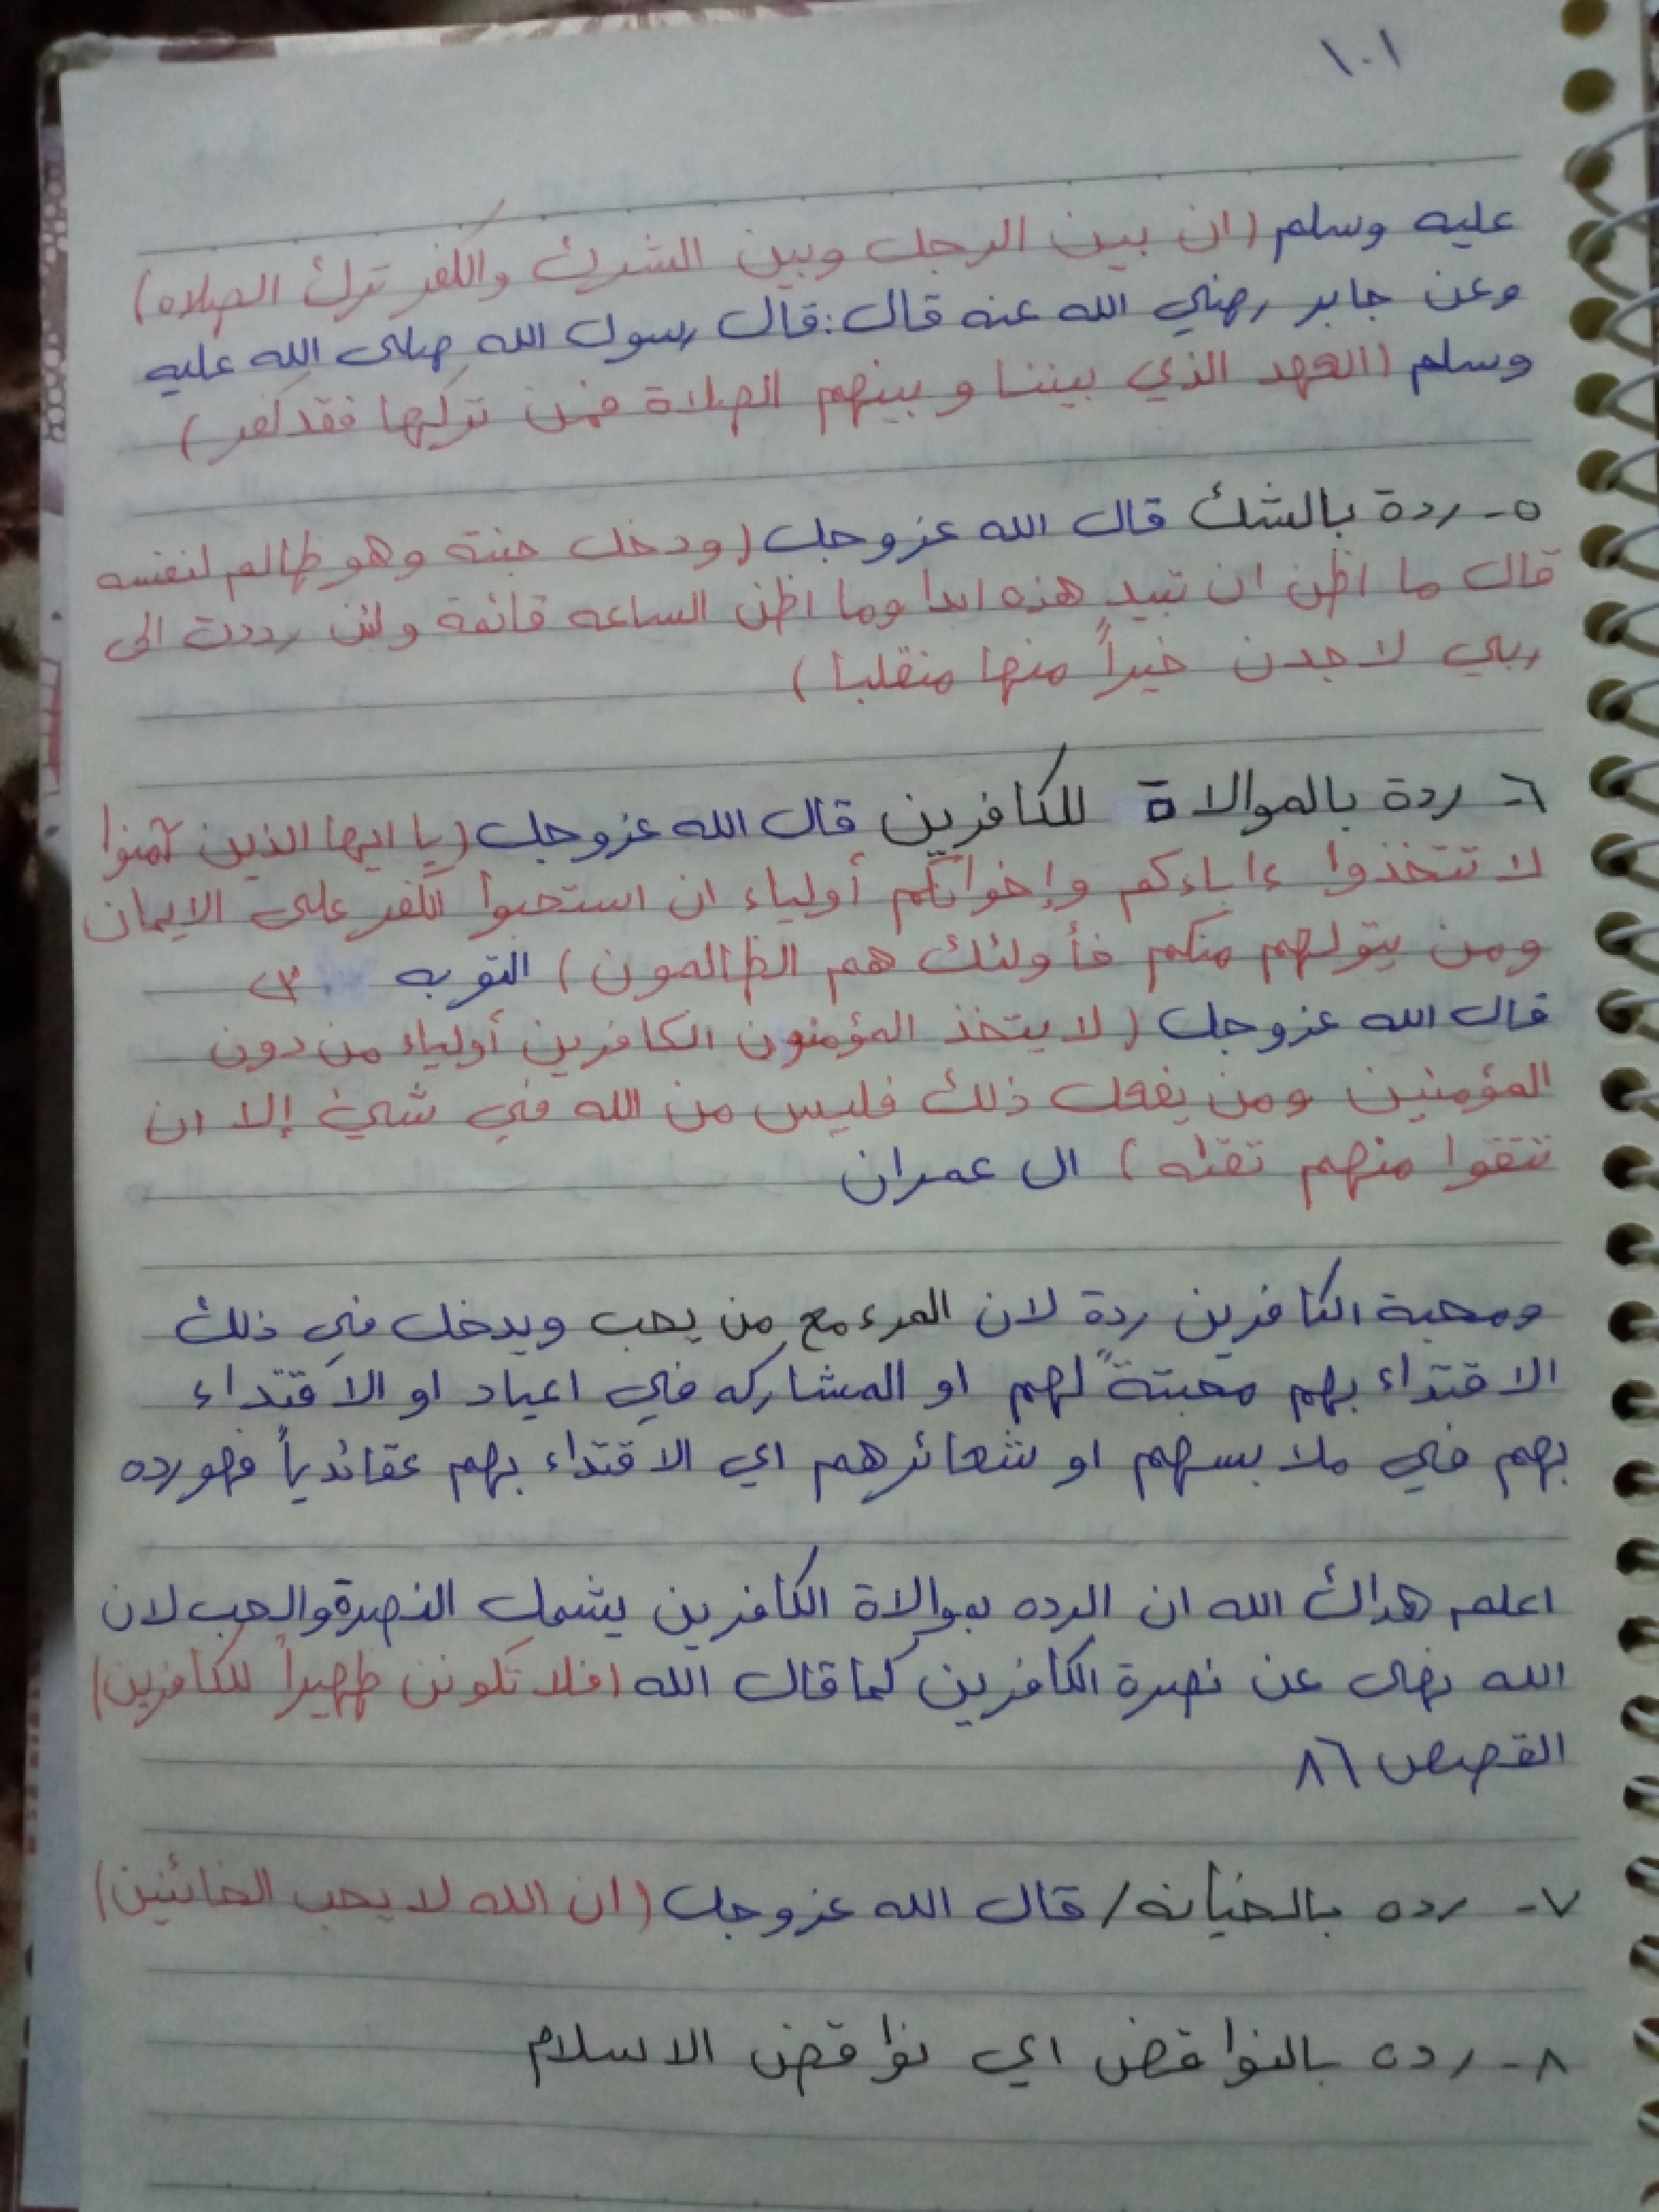 ١٠١
عليه وسلم (ان بين الرجل وبين الشرك والكفر ترك الصلاه)
وعن جابر رضي الله عنه قال: قال رسول الله صلى الله عليه
وسلم (العهد الذي بيننا وبينهم الصلاة فمن تركها فقد كفر)
٥- ردة بالشك قال الله عزوجل (ودخل جنته وهو ظالم لنفسه
قال ما اظن ان تبيد هذه ابدا وما اظن الساعه قائمة ولئن رددت الى
ربي لاجدن خيراً منها منقلبا)
٦- ردة بالموالاة للكافرين قال الله عزوجل (يا ايها الذين آمنوا
لا تتخذوا ءاباءكم وإخوانكم أولياء ان استحبوا الكفر على الايمان
ومن يتولهم منكم فأولئك هم الظالمون) التوبه ٢٣
قال الله عزوجل (لا يتخذ المؤمنون الكافرين أولياء من دون
المؤمنين ومن يفعل ذلك فليس من الله في شيئ إلا ان
تتقوا منهم تقئه) ال عمران
ومحبة الكافرين ردة لان المرء مع من يحب ويدخل في ذلك
الاقتداء بهم محبتةً لهم او المشاركه في اعياد او الاقتداء
بهم في ملابسهم او شعائرهم اي الاقتداء بهم عقائدياً فهو رده
اعلم هداك الله ان الرده بموالاة الكافرين يشمل النصرة والحب لان
الله نهى عن نصرة الكافرين كما قال الله (فلا تكونن ظهيراً للكافرين)
القصص ٨٦
٧- رده بالخيانه / قال الله عزوجل (ان الله لا يحب الخائنين)
٨- رده بالنواقض اي نواقض الاسلام